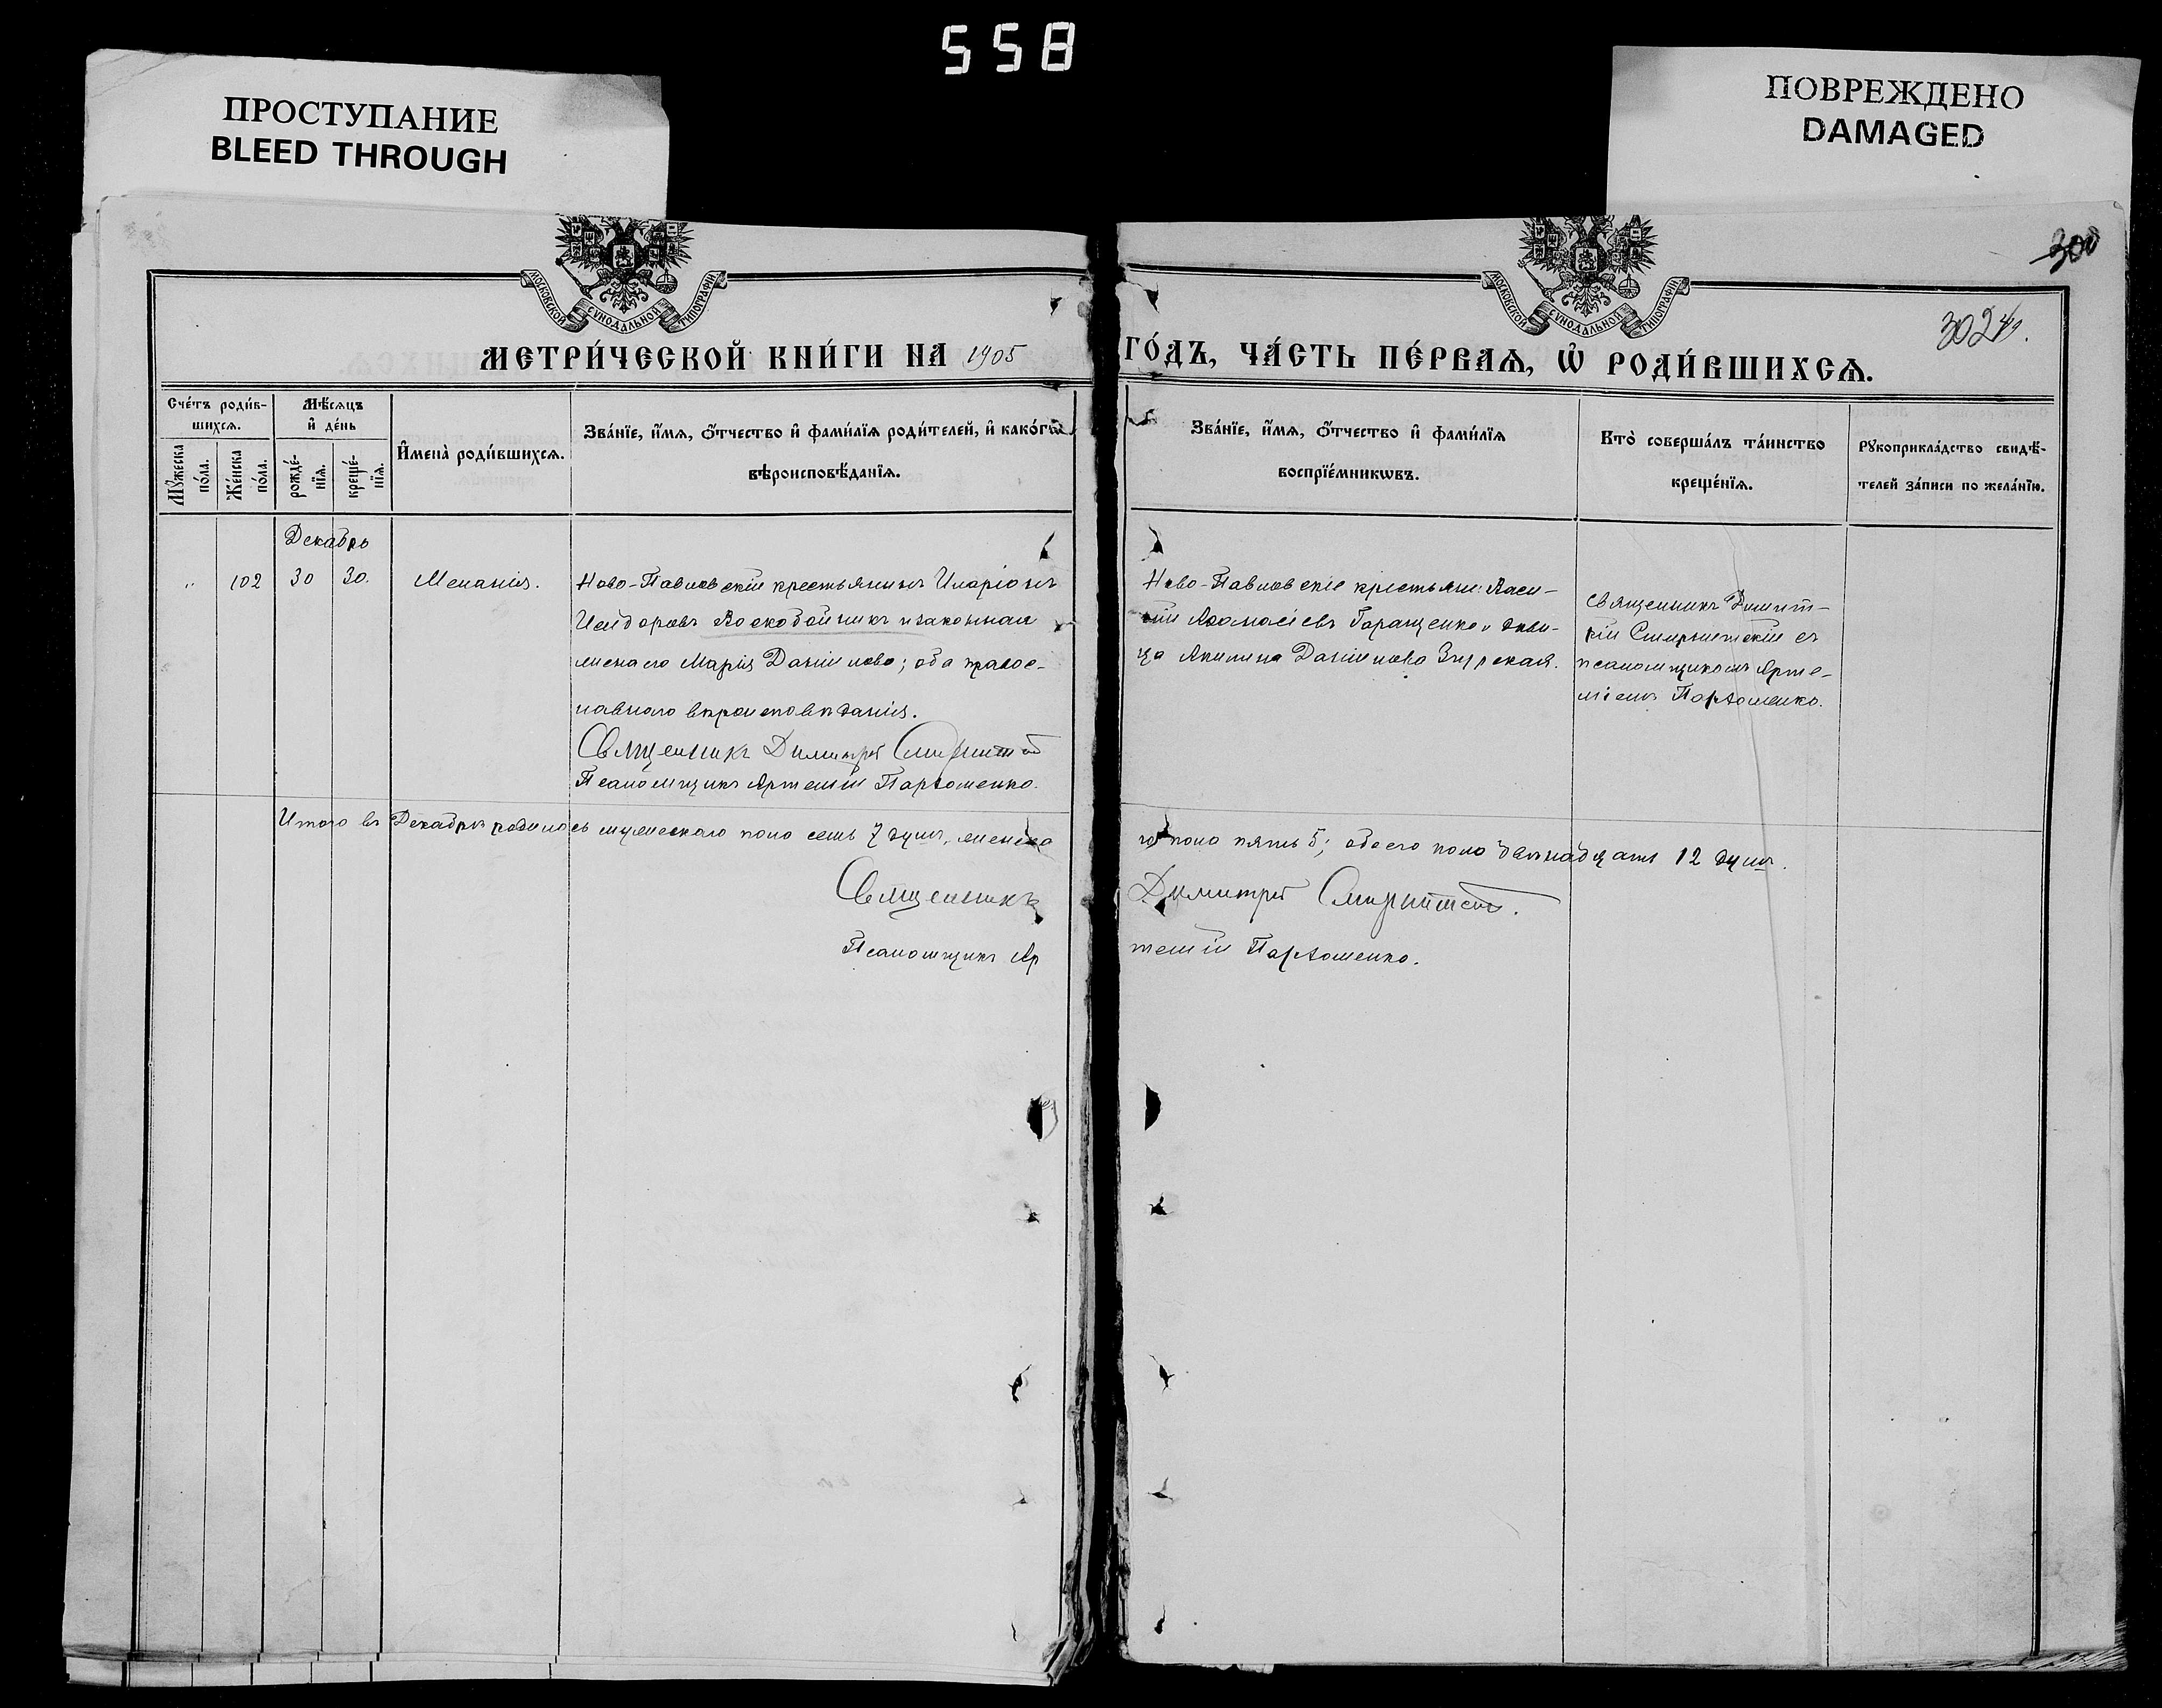 558
ПРОСТУПАНИЕ
BLEED THROUGH
ПОВРЕЖДЕНО
DAMAGED
300
302
МОСКОВСКОЙ СѴНОДАЛЬНОЙ ТИПОГРАФІИ
МОСКОВСКОЙ СѴНОДАЛЬНОЙ ТИПОГРАФІИ
МЕТРИ́ЧЕСКОЙ КНИ́ГИ НА 1905 ГО́ДЪ, ЧА́СТЬ ПЕ́РВАѦ, Ѡ҆ РОДИ́ВШИХСѦ.
Сче́тъ роди́в-
шихсѧ.
Мꙋ́жеска по́ла.
Же́нска по́ла.
Мѣ́сѧцъ
и҆ де́нь
рожде́-
нїѧ.
креще́-
нїѧ.
И҆мена̀ роди́вшихсѧ.
Зва́нїе, и҆́мѧ, ѻ҆́тчество и҆ фами́лїѧ роди́телей, и҆ како́гѡ
вѣроисповѣ́данїѧ.
Зва́нїе, и҆́мѧ, ѻ҆́тчество и҆ фами́лїѧ
воспрїе́мникѡвъ.
Кто̀ соверша́лъ та́инство
креще́нїѧ.
Рꙋкоприкла́дство свидѣ́-
телей за́писи по жела́нїю.
Декабрь
" 102 30 30. Меланія.
Ново-Павловскій крестьянинъ Иларіонъ
Исидоровъ Воскобойникъ и законная
жена его Марія Даніилова; оба право-
славнаго вѣроисповѣданія.
Священникъ Димитрій
Псаломщикъ Артемій Пархоменко.
Ново-Павловскіе крестьяне: Васи-
лій Аѳанасіевъ Гаращенко и дѣви-
ца Акилина Даніилова
Священникъ Димит-
рій съ
псаломщикомъ Арте-
міемъ Пархоменко.
Итого въ Декабрѣ родилось мужескаго пола семь 7 душъ, женска
го пола пять 5; обоего пола двѣнадцать 12 душъ.
Священникъ Димитрій
Псаломщикъ Ар
темій Пархоменко.